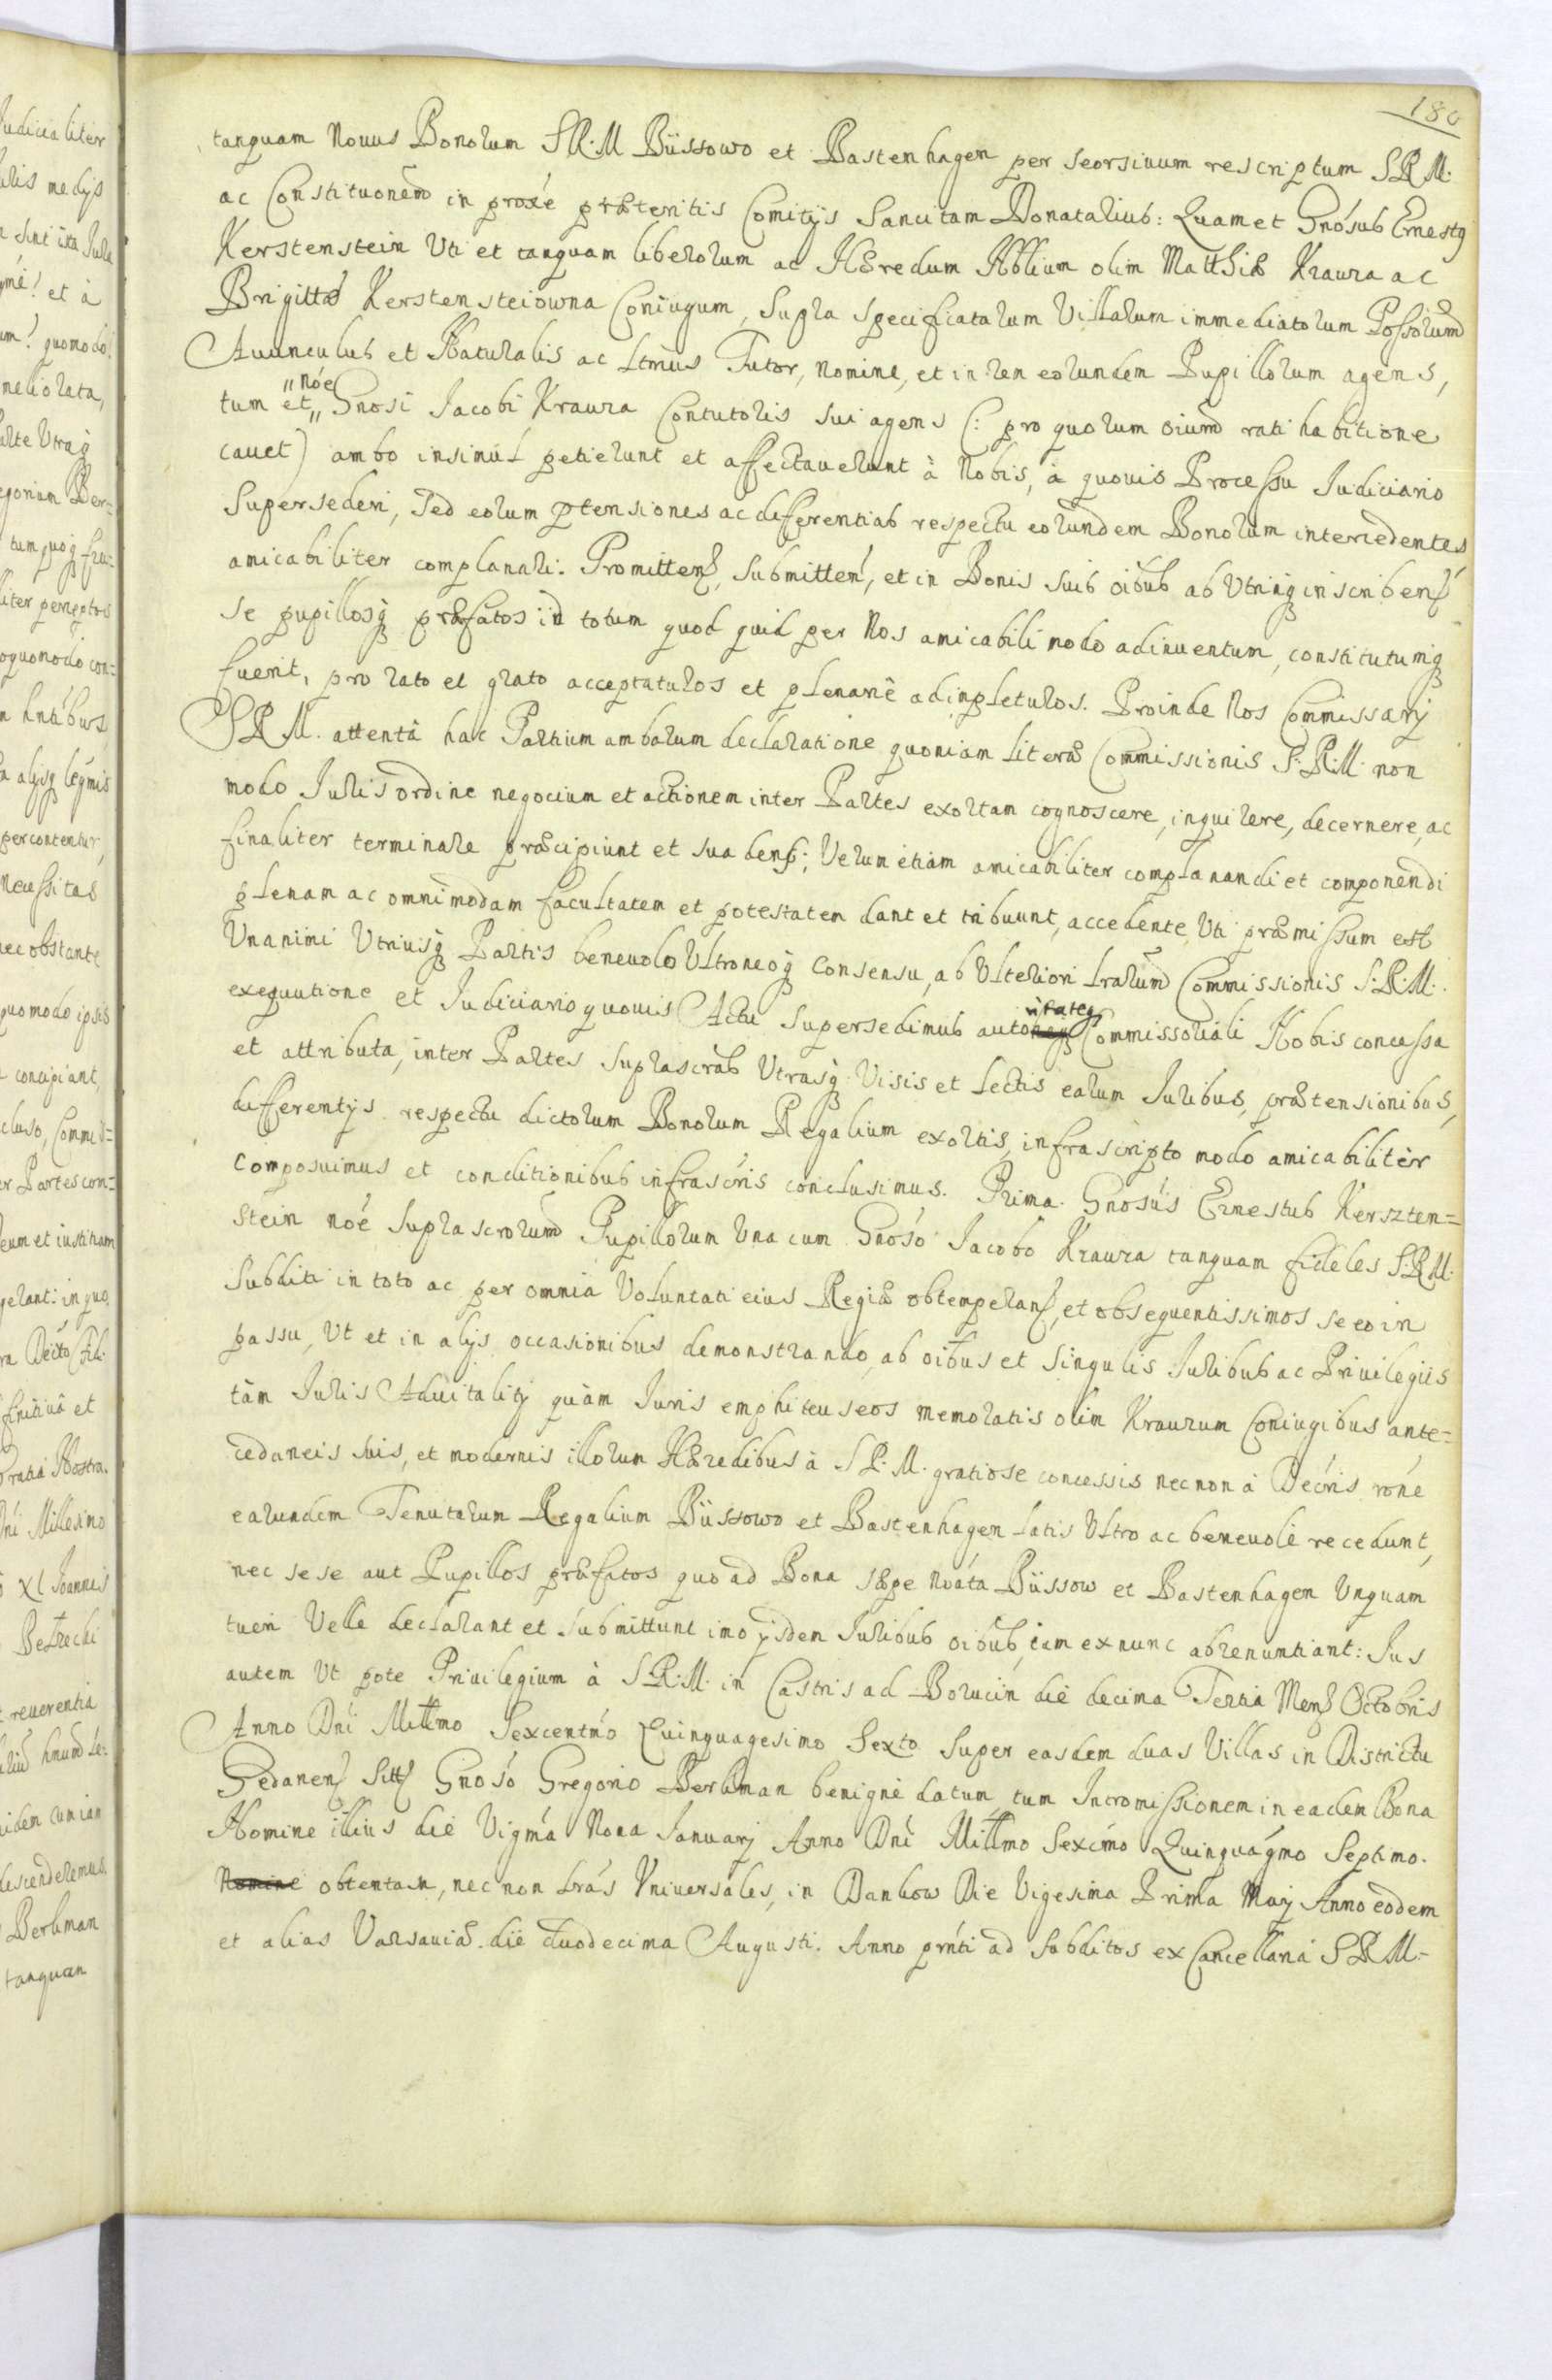 180
tanquam Novus Bonorum S.R.M. Büssowo et Bastenhagen per seorsivum rescriptum S.R.M.
ac Constituonem in proxé præteritis Comitijs Sancitam Donatarius: Quam et Gnósus Ernestq
Kerstenstein Uti et tanquam liberorum ac Hæredum Nblium olim Matthiæ Krauza ac
Brigittæ Kerstensteiowna Coniugum, Supra Specificatarum Villarum immediatorum Possórum
Avunculus et Naturalis ac Ltmus Tutor, nomine, et in rem eorundem Pupillorum agens,
tum et "nóe" Gnosi Jacobi Krauza Contutoris sui agens (: pro quorum oium rati habitione
cauet) ambo insimúl petierunt et affectauerunt à Nobis, à quovis Processu Judiciario
Supersederi, sed eorum ptensiones ac differentias respectu eorundem Bonorum intercedentes
amicabiliter complanari. Promitten, Submitten, et in Bonis suis oibus ab Utrinq inscriben
se pupillosq præfatos id totum quod quid per Nos amicabili modo adinventum, constitutumq
fuerit, pro rato et grato acceptaturos et plenarié adimpleturos. Proinde Nos Commissarij
S.R.M. attentâ hac Partium ambarum declaratione quoniam literæ Commissionis S.R.M. non
modo Juris ordine negocium et actionem inter Partes exortam cognoscere, inquirere, decernere, ac
finaliter terminare præcipiunt et suadens; Verum etiam amicabiliter complanandi et componendi
plenam ac omnimodam facultatem et potestatem dant et tribuunt, accedente, Uti præmissum est
Unanimi Utriusq Partis benevolo Ultroneoq Consensu, ab Ulteriori Lrarum Commissionis S.R.M.
exequutione et Judiciario quovis Actu Supersedimus auto ritateq Commissoriali Nobis concessa
et attributa, inter Partes suprascras Utrasq Visis et lectis earum Juribus, prætensionibus,
differentijs respectu dictorum Bonorum Regalium exortis, infrascripto modo amicabiliter
composuimus et conditionibus infrascris conclusimus. Prima. Gnosús Ernestus Kerszten=
stein noé suprascrorum Pupillorum Una cum Gnósó Jacobo Krauza tanquam fideles S.R.M.
Subditi in toto ac per omnia Voluntati eius Regiæ obtemperan, et obsequentissimos se eo in
passu, Ut et in alijs occasionibus demonstrando, ab oibus et Singulis Juribus ac Privilegiis
tàm Juris Advitalitij quàm Juris emphiteuseos memoratis olim Krauzum Coniugibus ante=
cedaneis suis, et modernis illorum Hæredibus à S.R.M. gratiose concessis nec non à Décris róne
earundem Tenutarum Regalium Büssowo et Bastenhagen latis Ultro ac benevolé recedunt,
nec sese aut Pupillos præfatos quo ad Bona sæpe noáta Büssow et Bastenhagen Unquam
tueri Velle declarant et submittunt imo ijsdem Juribus oibus, iam ex nunc abrenuntiant: Jus
autem Ut pote Privilegium à S.R.M. in Castris ad Borucin die decima Tertia Mens Octobris
Anno Dni Millmo Sexcentmó Quinquagesimo Sexto super easdem duas Villas in Districtu
Gedanen Sitt Gnósó Gregorio Berkman benigné datum, tum Intromissionem in eadem Bona
Nomine illius dié Vigmá Nona Januarj Anno Dni Millmo Sexcmo Quinquágmo Septimo.
Nomine obtentam, nec non Lrás Universales, in Dankow Die Vigesima Prima Maij Anno eodem
et alias Varsaviæ die duodecima Augusti. Anno prnti ad subditos ex Cancellariá S.R.M.